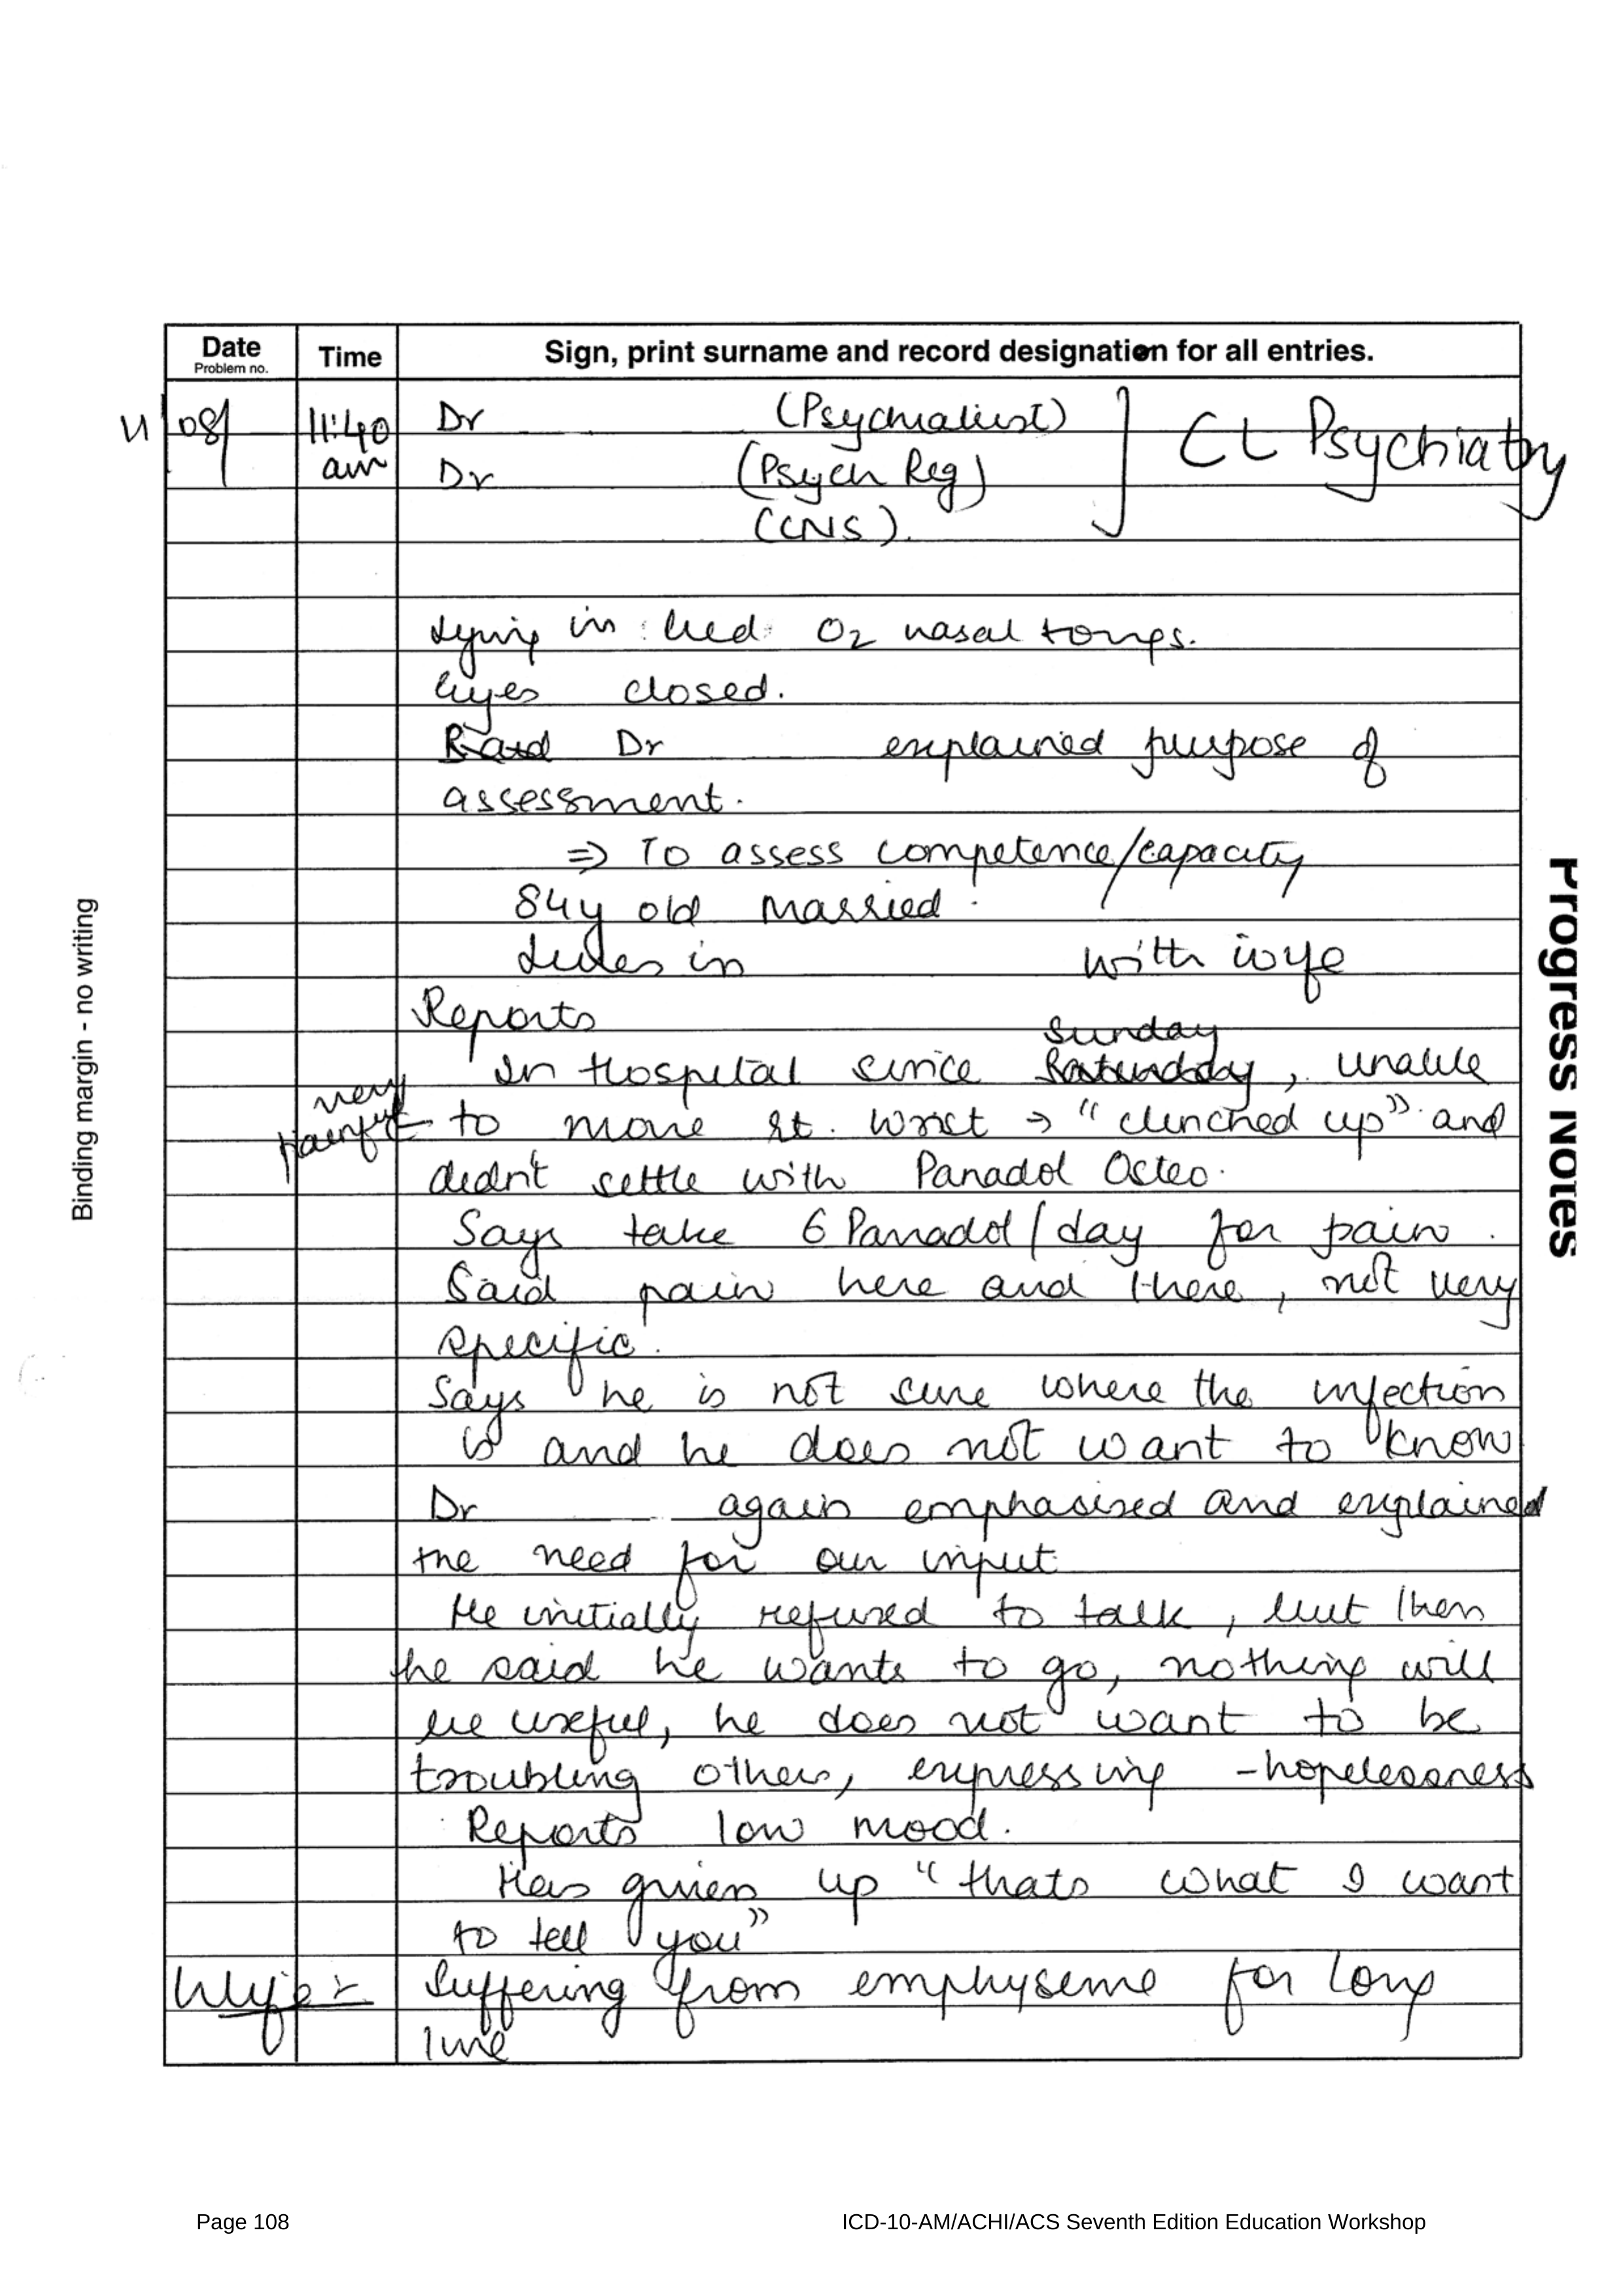 Date
Problem no.
Time
Sign, print surname and record designation for all entries.
11/08/ 11:40 Dr (Psychiatrist)
am Dr (Psych Reg)
(CNS).
CL Psychiatry
Lying in bed O2 nasal tongs.
Eyes closed.
Dr explained purpose of
assessment.
⇒ To assess competence/capacity
84y old married.
Lives in with wife
Reports
Sunday
In Hospital since Saturday, unable
very painful
to move rt. wrist → "clenched up" and
didn't settle with Panadol Osteo.
Says take 6 Panadol/day for pain.
Said pain here and there, not very
specific.
Says he is not sure where the infection
is and he does not want to know
Dr again emphasised and explained
the need for our input.
He initially refused to talk, but then
he said he wants to go, nothing will
be useful, he does not want to be
troubling others, expressing -hopelessness
Reports low mood.
Has given up "thats what I want
to tell you"
Wife:- Suffering from emphyseme for long
time
Binding margin - no writing
Progress Notes
Page 108
ICD-10-AM/ACHI/ACS Seventh Edition Education Workshop